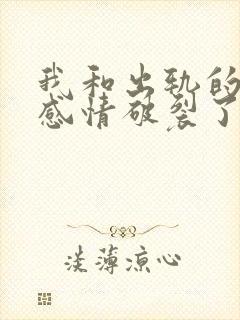 我和出轨的
感情破裂了
淡薄凉心